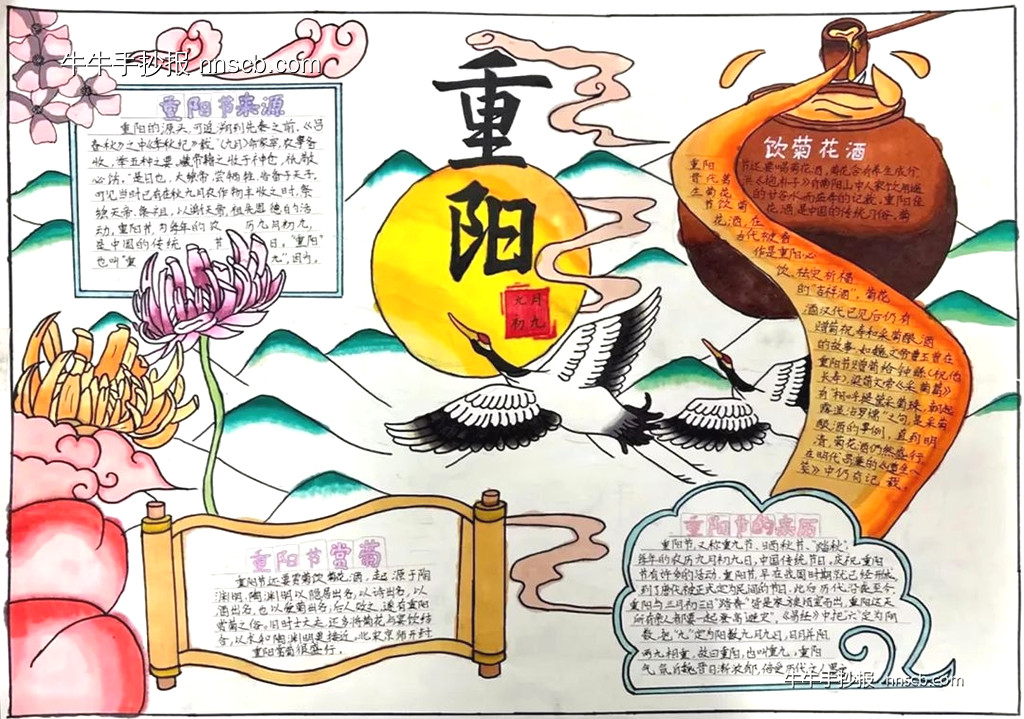 牛牛手抄报 nnscb.com
重阳
九月
初九
重阳节来源
重阳的源头,可追溯到先秦之前,《吕
春秋》之中《季秋纪》载:
收,举五种之要。藏帝籍之收于神仓,祗敬
必饬。"是日也,大飨帝,尝牺牲,告备于天子。
可见当时已有在秋九月农作物丰收之时,祭
飨天帝、祭祖,以谢天帝、祖先恩德的活
动,重阳节,为每年的农 历九月初九,
是中国的传统 节 日。"重阳"
也叫"重 九",因为,
饮菊花酒
重阳 节还要喝菊花酒,菊花含有养生成分,
晋代葛 洪《抱朴子》有南阳山中人家饮用遍
生菊花 的甘谷水而益寿的记载。重阳佳
节饮菊 花酒,是中国的传统习俗,菊
花酒,在
古代被看
作是重阳必
饮、祛灾祈福
的"吉祥酒"。菊花
酒汉代已见后仍有
赠菊祝寿和采菊酿酒
的故事,如魏文帝曹丕曾在
重阳节赠菊给钟繇(祝他
长寿),梁简文帝《采菊篇》
有"相呼提筐采菊珠,朝起
露湿沾罗襦"之句,是采菊
酿酒的事例,直到明
清,菊花酒仍然盛行,
在明代高濂的《遵生八
笺》中仍有记 载。
重阳节赏菊
重阳节还要赏菊饮菊花酒,起源于陶
渊明,陶渊明以隐居出名,以诗出名,以
酒出名,也以爱菊出名;后人效之,遂有重阳
赏菊之俗。旧时士大夫,还多将菊花与宴饮结
合,以求和陶渊明更接近,北宋京师开封
重阳赏菊很盛行。
重阳节的来历
重阳节,又称重九节、晒秋节、"踏秋",
每年的农历九月初九日,中国传统节日,庆祝重阳
节有许多的活动。重阳节早在战国时期就已经形成,
到了唐代被正式定为民间的节日,此后历代沿袭至今,
重阳与三月初三日"踏春"皆是家族倾室而出,重阳这天
所有亲人都要一起登高"避灾",《易经》中把六定为阴
数,把"九"定为阳数,九月九日,日月并阳,
两九相重,故曰重阳,也叫重九,重阳
气氛 日渐浓郁,倍受历代文人墨
牛牛手抄报 nnscb.com